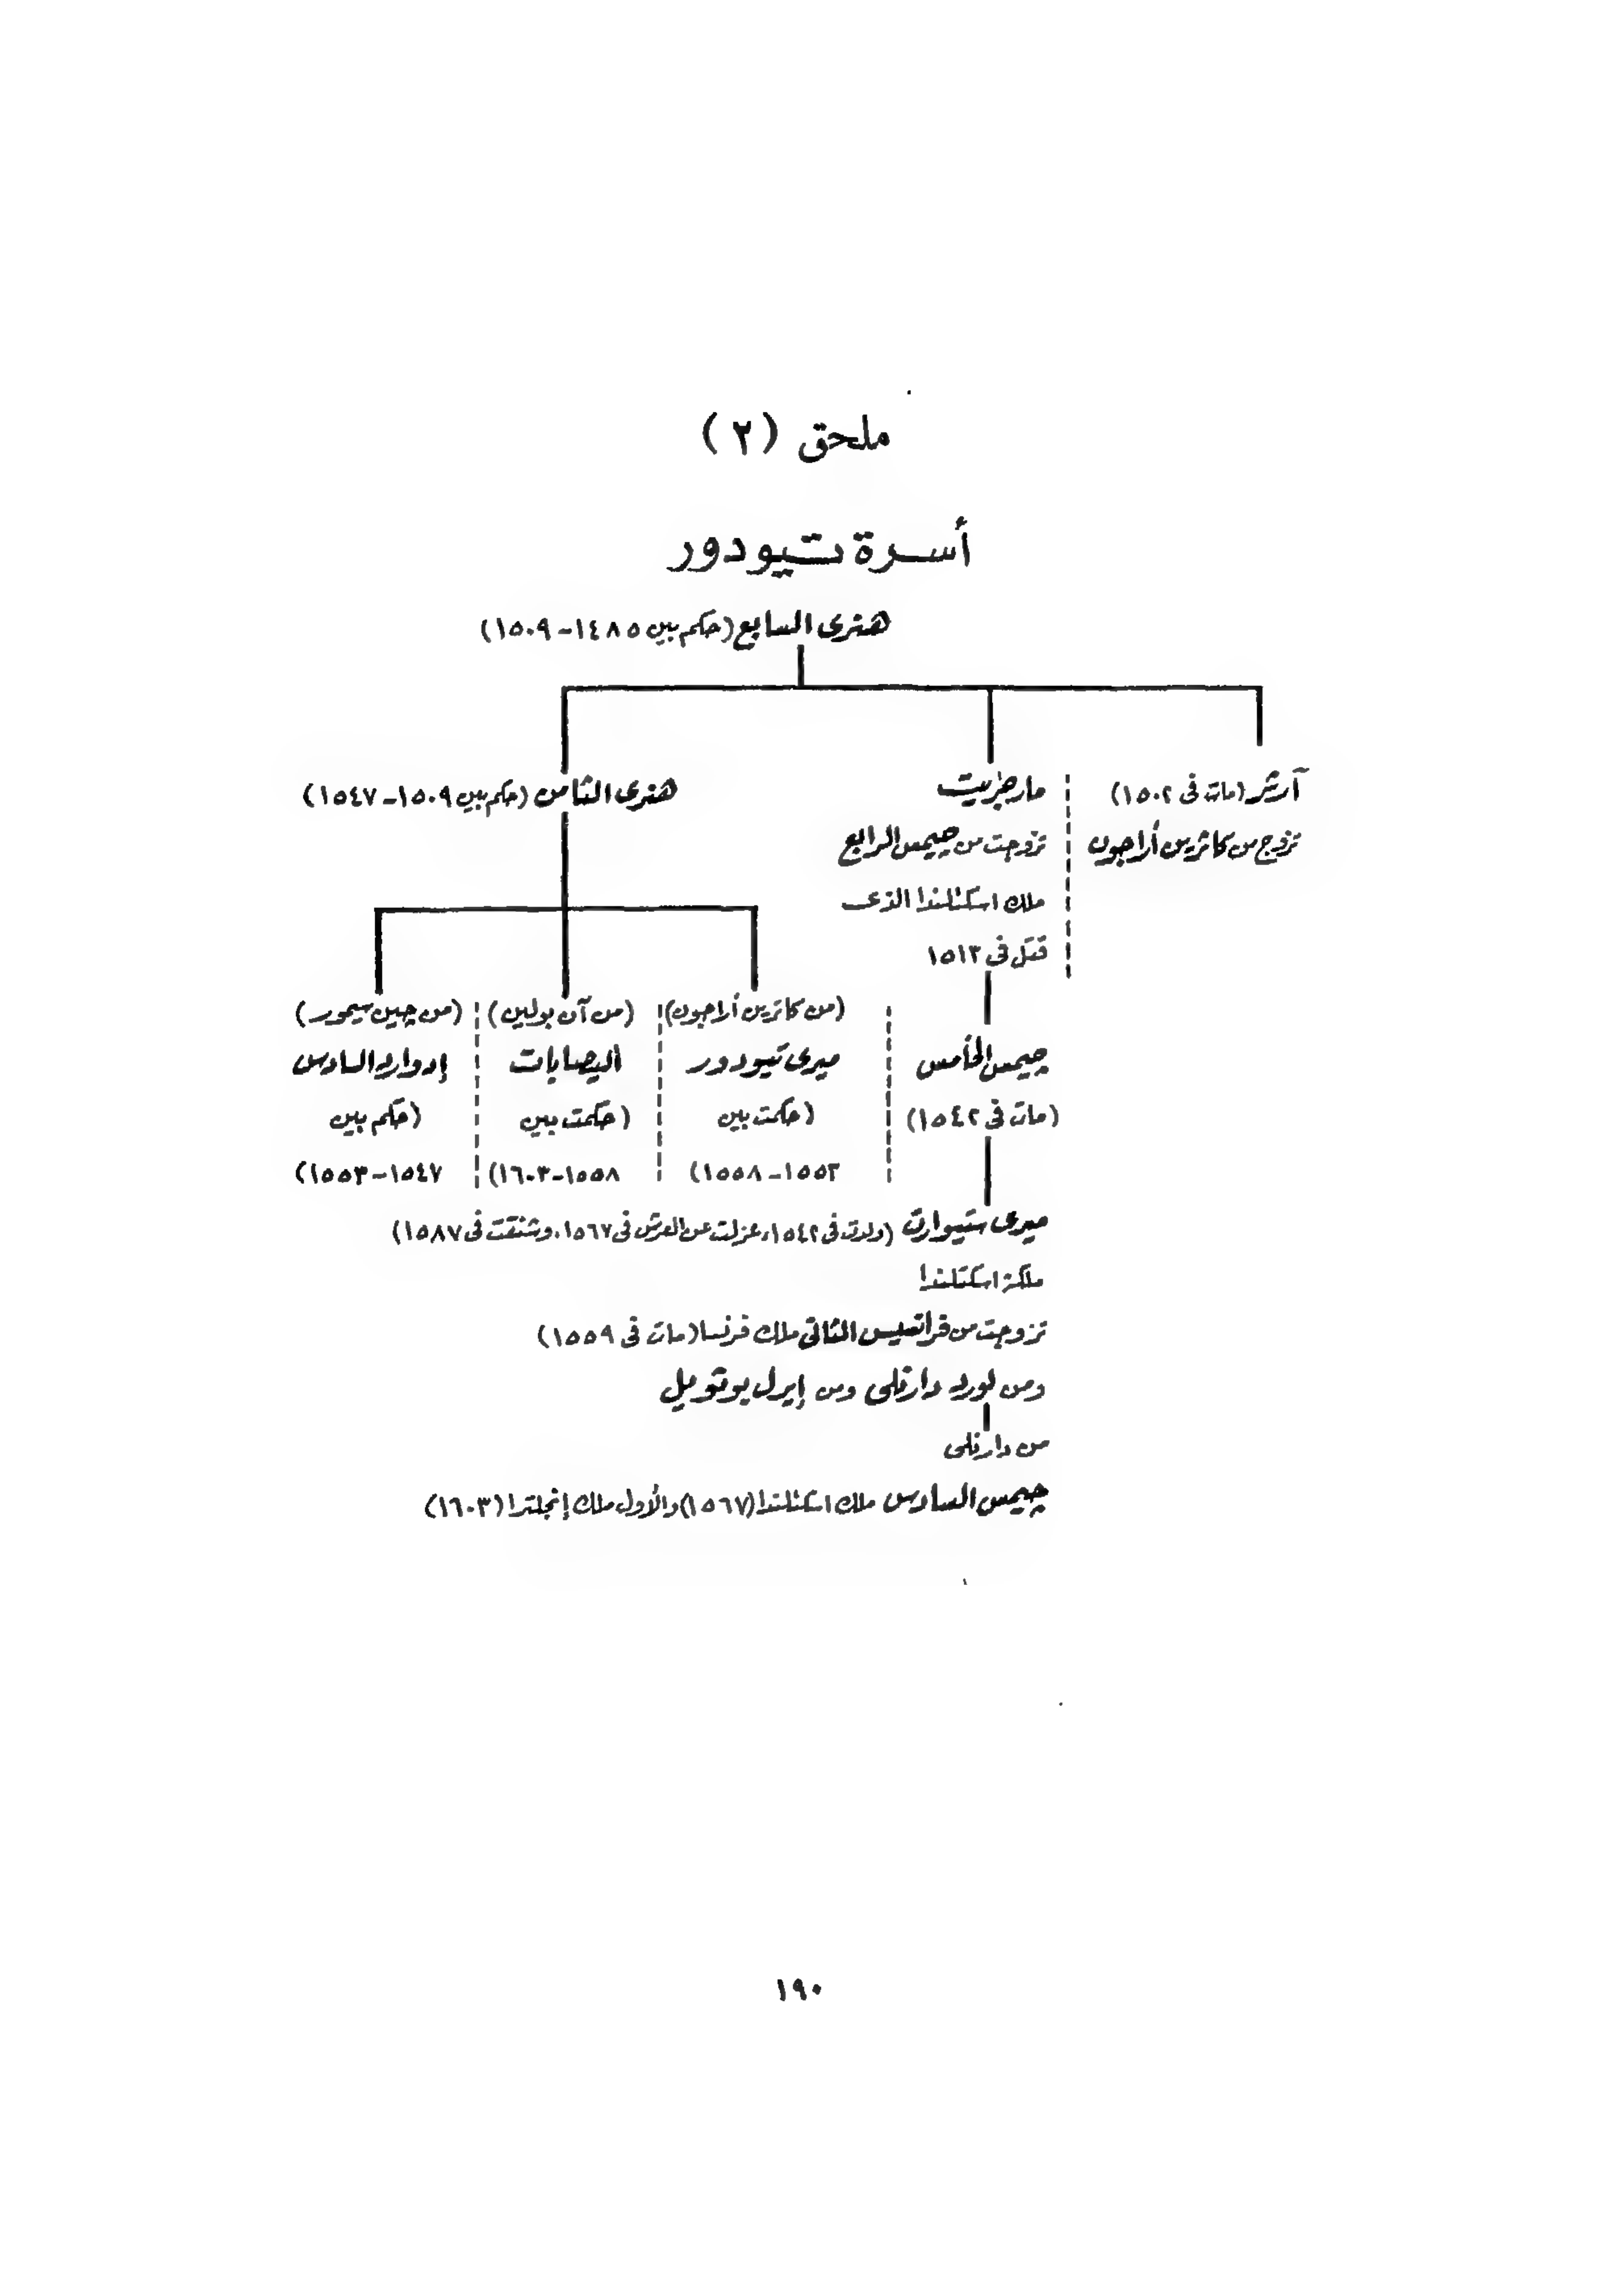 ملحق (٢)
أسرة تيودور
هنرى السابع (حكم بين ١٤٨٥ - ١٥٠٩)
آرثر (مات فى ١٥٠٢)
تزوج من كاثرين أراجون
مارجريت
تزوجت من چيمس الرابع
ملك اسكتلندا الذى
قتل فى ١٥١٣
هنرى الثامن (حكم بين ١٥٠٩ - ١٥٤٧)
چيمس الخامس
(مات فى ١٥٤٢)
(من كاثرين أراجون)
ميرى تيودور
(حكمت بين
١٥٥٣ - ١٥٥٨)
(من آن بولين)
اليصابات
(حكمت بين
١٥٥٨ - ١٦٠٣)
(من چين سيمور)
إدوارد السادس
(حكم بين
١٥٤٧ - ١٥٥٣)
ميرى ستيوارت (ولدت فى ١٥٤٢، عزلت عن العرش فى ١٥٦٧، وشنقت فى ١٥٨٧)
ملكة اسكتلندا
تزوجت من فرانسيس الثانى ملك فرنسا (مات فى ١٥٥٩)
ومن لورد دارنلى ومن إيرل بوثويل
من دارنلى
چيمس السادس ملك اسكتلندا (١٥٦٧) والأول ملك إنجلترا (١٦٠٣)
١٩٠